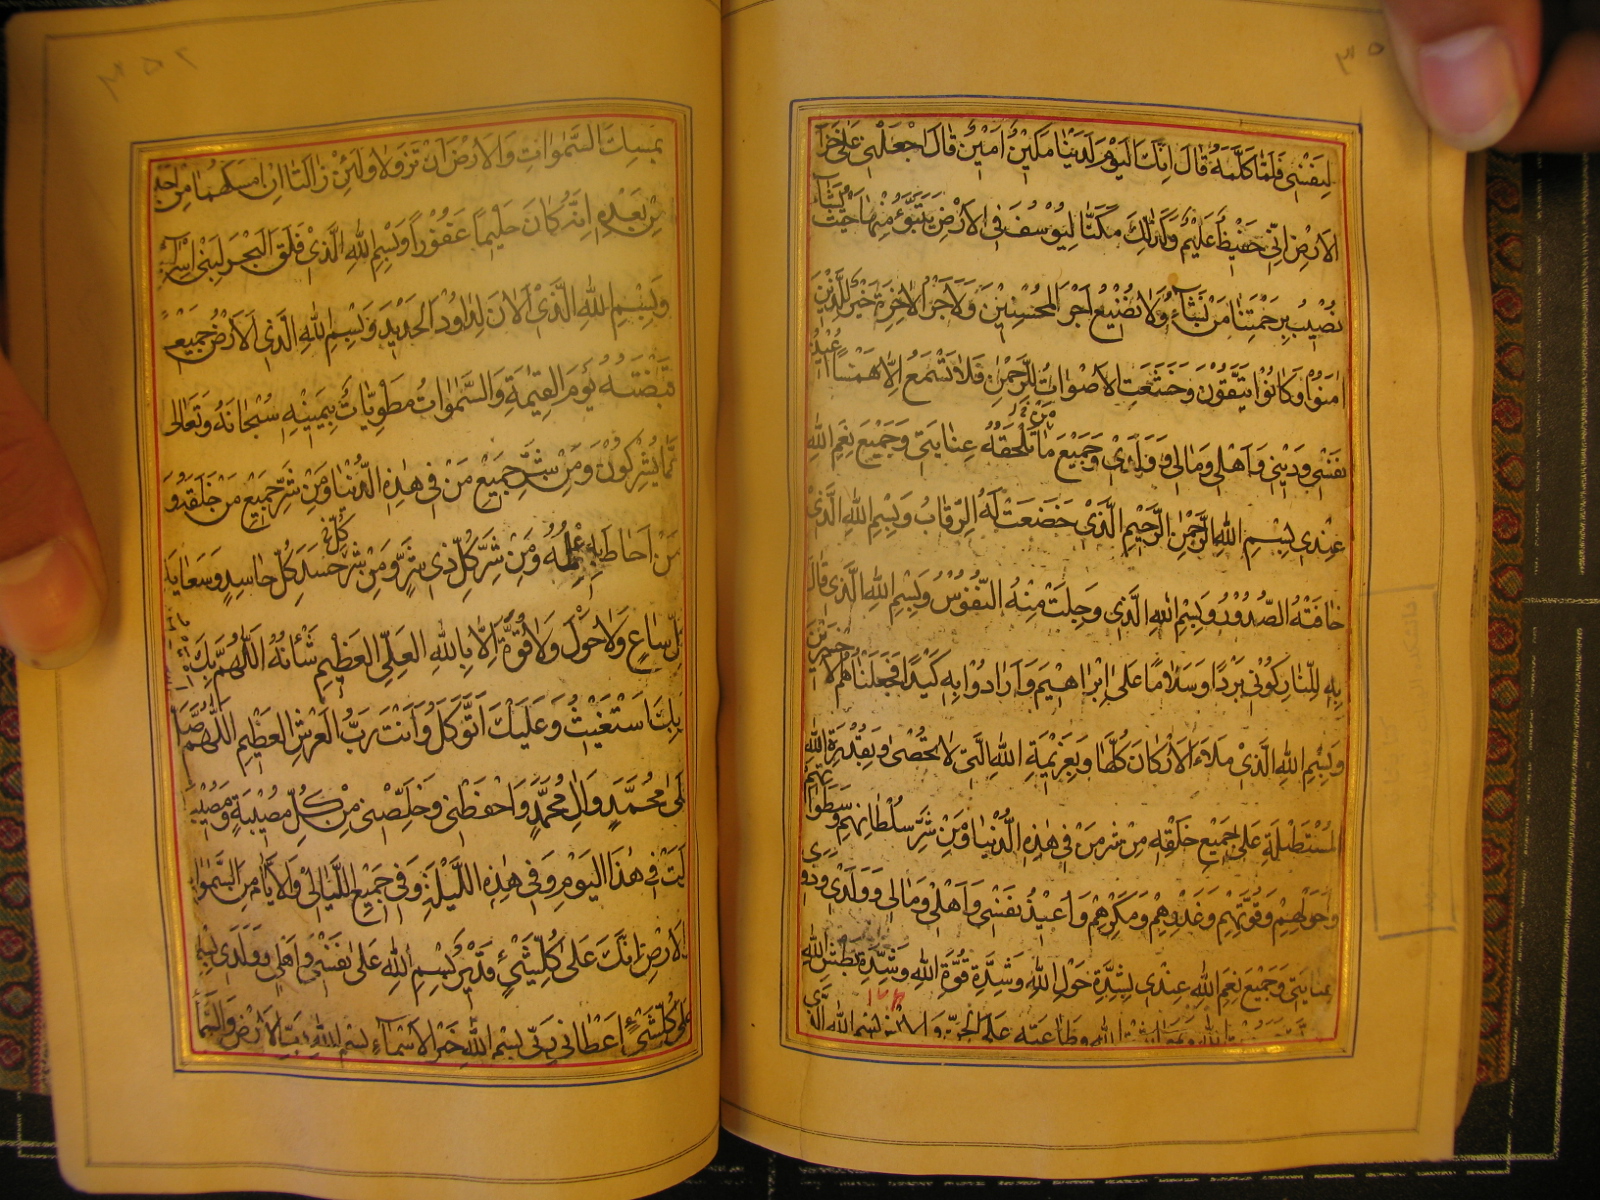 لِنَفْسِي فَلَمَّا كَلَّمَهُ قَالَ اِنَّكَ الْيَوْمَ لَدَيْنَا مَكِيْنٌ اَمِيْنٌ قَالَ اجْعَلْنِي عَلٰى خَزَآ
الْاَرْضِ اِنِّي حَفِيْظٌ عَلِيْمٌ وَكَذٰلِكَ مَكَّنَّا لِيُوْسُفَ فِي الْاَرْضِ يَتَبَوَّءُ مِنْهَا حَيْثُ يَشَآءُ
نُصِيْبُ بِرَحْمَتِنَا مَنْ نَشَآءُ وَلَا نُضِيْعُ اَجْرَ الْمُحْسِنِيْنَ وَلَاَجْرُ الْاٰخِرَةِ خَيْرٌ لِلَّذِيْنَ
اٰمَنُوْا وَكَانُوْا يَتَّقُوْنَ وَخَشَعَتِ الْاَصْوَاتُ لِلرَّحْمٰنِ فَلَا تَسْمَعُ اِلَّا هَمْسًا اُعِيْذُ
نَفْسِي وَدِيْنِي وَاَهْلِي وَمَالِي وَوَلَدِي وَجَمِيْعَ مَا تَلْحَقُهُ عِنَايَتِي وَجَمِيْعَ نِعَمِ اللّٰهِ
عِنْدِي بِسْمِ اللّٰهِ الرَّحْمٰنِ الرَّحِيْمِ الَّذِي خَضَعَتْ لَهُ الرِّقَابُ وَبِسْمِ اللّٰهِ الَّذِي
خَافَتْهُ الصُّدُوْرُ وَبِسْمِ اللّٰهِ الَّذِي وَجِلَتْ مِنْهُ النُّفُوْسُ وَبِسْمِ اللّٰهِ الَّذِي قَالَ
بِهِ لِلنَّارِ كُوْنِي بَرْدًا وَسَلَامًا عَلٰى اِبْرَاهِيْمَ وَاَرَادُوْا بِهِ كَيْدًا فَجَعَلْنَاهُمُ الْاَخْسَرِيْنَ
وَبِسْمِ اللّٰهِ الَّذِي مَلَاَ الْاَرْكَانَ كُلَّهَا وَبِعَزِيْمَةِ اللّٰهِ الَّتِي لَا تُحْصٰى وَبِقُدْرَةِ اللّٰهِ
الْمُسْتَطِيْلَةِ عَلٰى جَمِيْعِ خَلْقِهِ مِنْ شَرِّ مَنْ فِي هٰذِهِ الدُّنْيَا وَمِنْ شَرِّ سُلْطَانِهِمْ وَسَطَوَاتِهِمْ
وَحَوْلِهِمْ وَقُوَّتِهِمْ وَغَدْرِهِمْ وَمَكْرِهِمْ وَاُعِيْذُ نَفْسِي وَاَهْلِي وَمَالِي وَوَلَدِي وَذَوِي
عِنَايَتِي وَجَمِيْعَ نِعَمِ اللّٰهِ عِنْدِي بِشِدَّةِ حَوْلِ اللّٰهِ وَشِدَّةِ قُوَّةِ اللّٰهِ وَشِدَّةِ بَطْشِ اللّٰهِ
اللّٰهِ وَطَاعَتِهِ عَلَى الْجِنِّ وَالْاِنْسِ بِسْمِ اللّٰهِ الَّذِي
يُمْسِكُ السَّمٰوَاتِ وَالْاَرْضَ اَنْ تَزُوْلَا وَلَئِنْ زَالَتَا اِنْ اَمْسَكَهُمَا مِنْ اَحَدٍ
مِنْ بَعْدِهِ اِنَّهُ كَانَ حَلِيْمًا غَفُوْرًا وَبِسْمِ اللّٰهِ الَّذِي فَلَقَ الْبَحْرَ لِبَنِي اِسْرَآ
وَبِسْمِ اللّٰهِ الَّذِي اَلَانَ لِدَاوُدَ الْحَدِيْدَ وَبِسْمِ اللّٰهِ الَّذِي الْاَرْضُ جَمِيْعًا
قَبْضَتُهُ يَوْمَ الْقِيٰمَةِ وَالسَّمٰوَاتُ مَطْوِيَّاتٌ بِيَمِيْنِهِ سُبْحَانَهُ وَتَعَالٰى
عَمَّا يُشْرِكُوْنَ وَمِنْ شَرِّ جَمِيْعِ مَنْ فِي هٰذِهِ الدُّنْيَا وَمِنْ شَرِّ جَمِيْعِ مَنْ خَلَقَهُ وَ
مَنْ اَحَاطَ بِهِ عِلْمُهُ وَمِنْ شَرِّ كُلِّ ذِي شَرٍّ وَمِنْ شَرِّ حَسَدِ كُلِّ حَاسِدٍ وَسَعَايَةِ
كُلِّ سَاعٍ وَلَا حَوْلَ وَلَا قُوَّةَ اِلَّا بِاللّٰهِ الْعَلِيِّ الْعَظِيْمِ شَأْنُهُ اَللّٰهُمَّ بِكَ
بِكَ اَسْتَغِيْثُ وَعَلَيْكَ اَتَوَكَّلُ وَاَنْتَ رَبُّ الْعَرْشِ الْعَظِيْمِ اَللّٰهُمَّ صَلِّ
عَلٰى مُحَمَّدٍ وَاٰلِ مُحَمَّدٍ وَاحْفَظْنِي وَخَلِّصْنِي مِنْ كُلِّ مُصِيْبَةٍ وَمُصِيْبَةٍ
نَزَلَتْ فِي هٰذَا الْيَوْمِ وَفِي هٰذِهِ اللَّيْلَةِ وَفِي جَمِيْعِ اللَّيَالِي وَالْاَيَّامِ مِنَ السَّمٰوَاتِ
وَالْاَرْضِ اِنَّكَ عَلٰى كُلِّ شَيْءٍ قَدِيْرٌ بِسْمِ اللّٰهِ عَلٰى نَفْسِي وَاَهْلِي وَوَلَدِي بِسْمِ
عَلٰى كُلِّ شَيْءٍ اَعْطَانِي رَبِّي بِسْمِ اللّٰهِ خَيْرِ الْاَسْمَآءِ بِسْمِ اللّٰهِ رَبِّ الْاَرْضِ وَالسَّمَآ